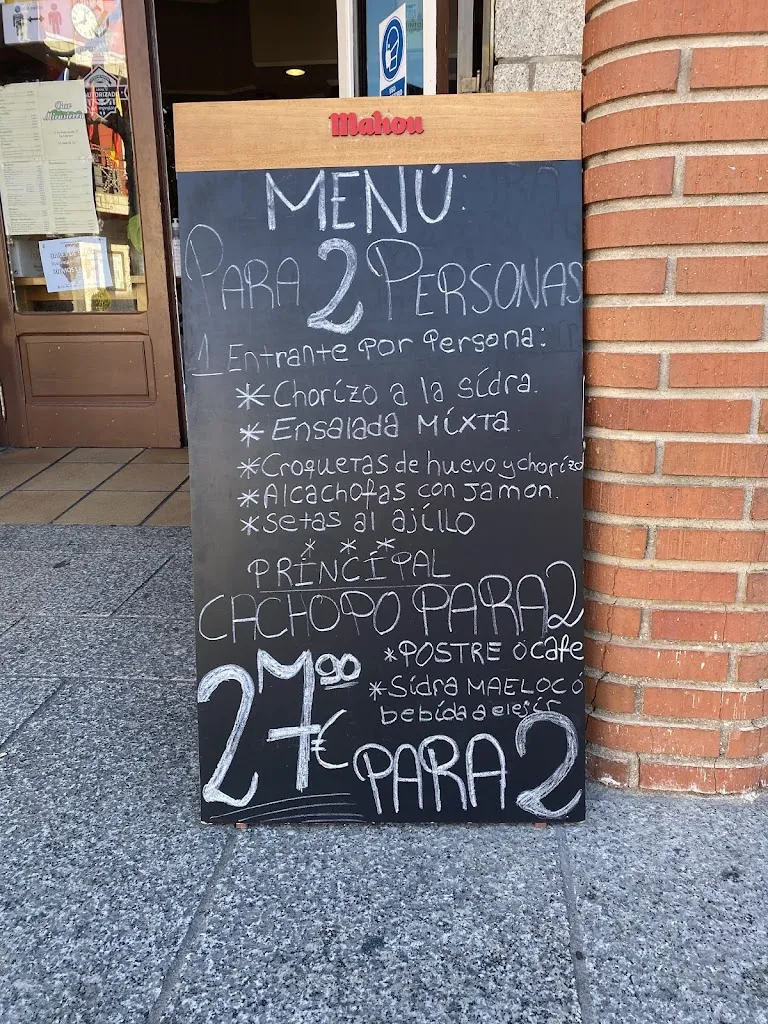 Mahou
MENÚ:
PARA 2 PERSONAS
1 Entrante por Persona:
*Chorizo a la sidra.
*Ensalada Mixta.
*Croquetas de huevo y chorizo
*Alcachofas con jamon.
*Setas al ajillo
* * *
PRINCIPAL
CACHOPO PARA 2
*POSTRE O cafe
*Sidra MAELOC Ó
bebida a elejir
27'90€ PARA 2
Bar